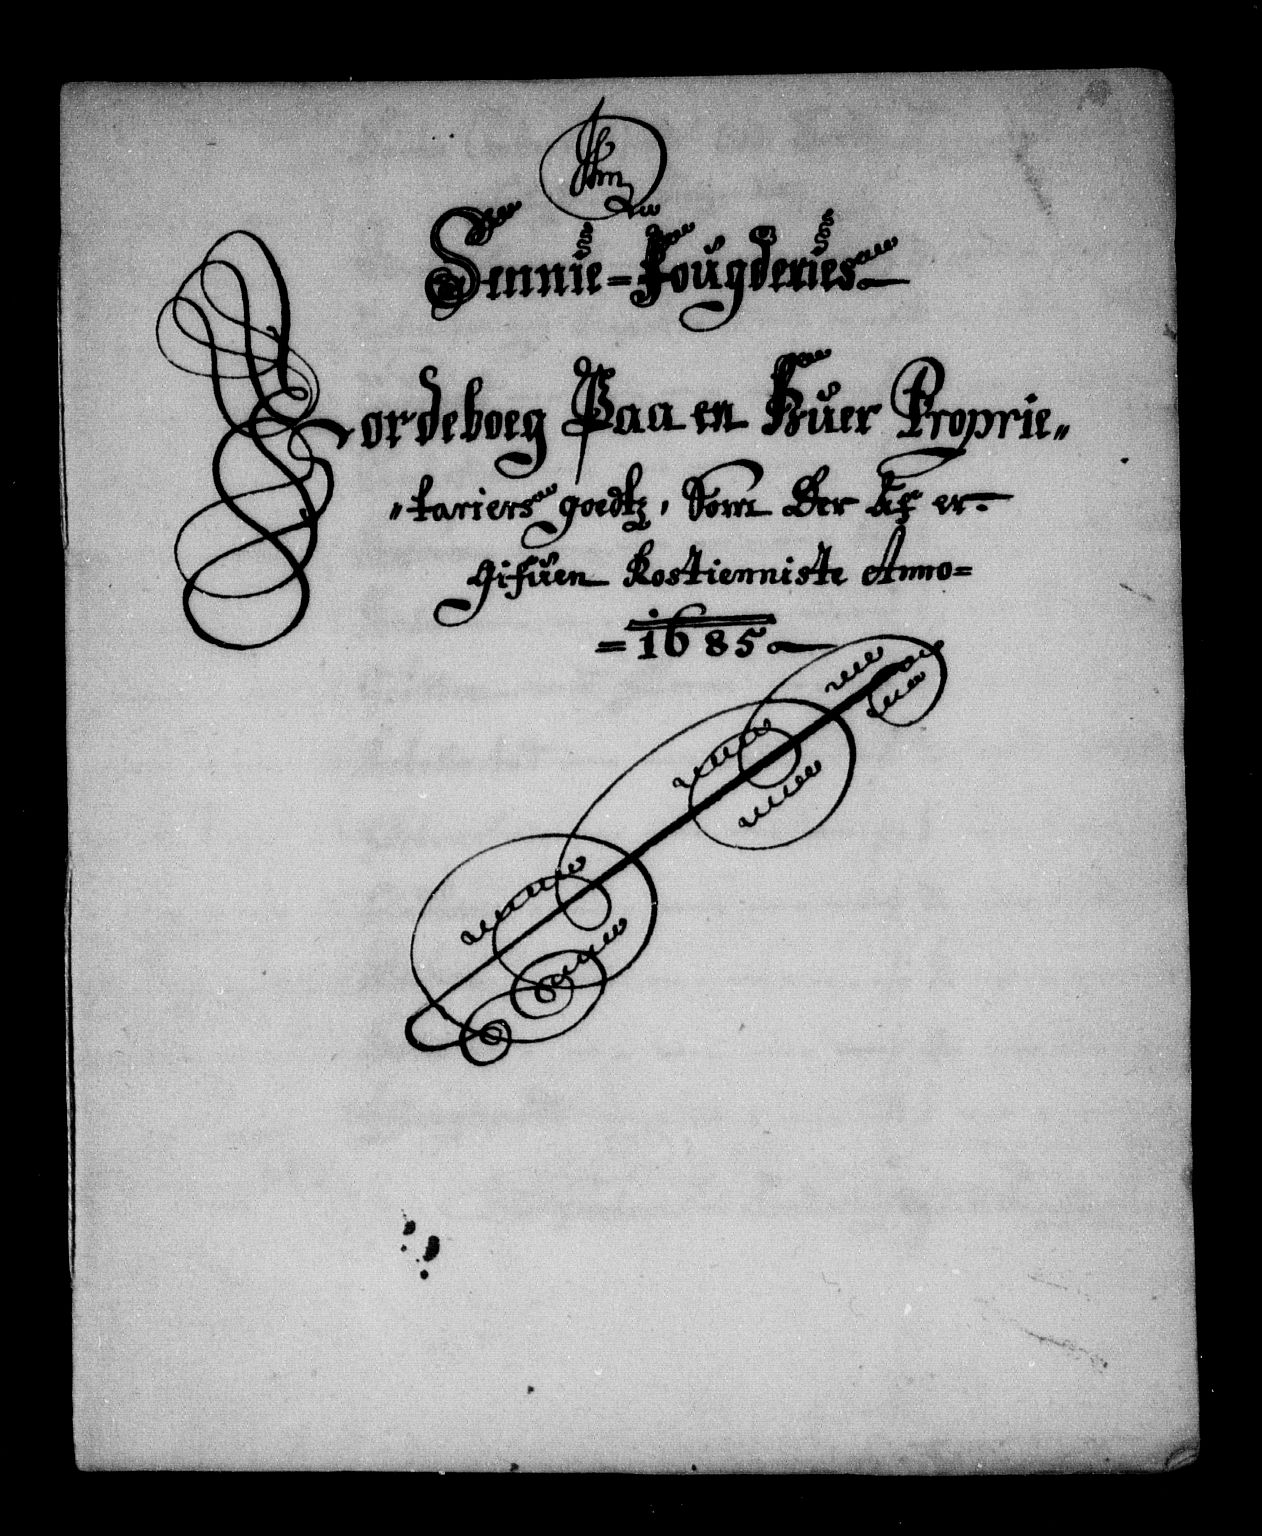 Sennie=Fougderies
Jordeboeg Paa en huer Proprie„
„tariers goedtz, Som Der Af er
gifuen Rostienniste Anno=
=1685